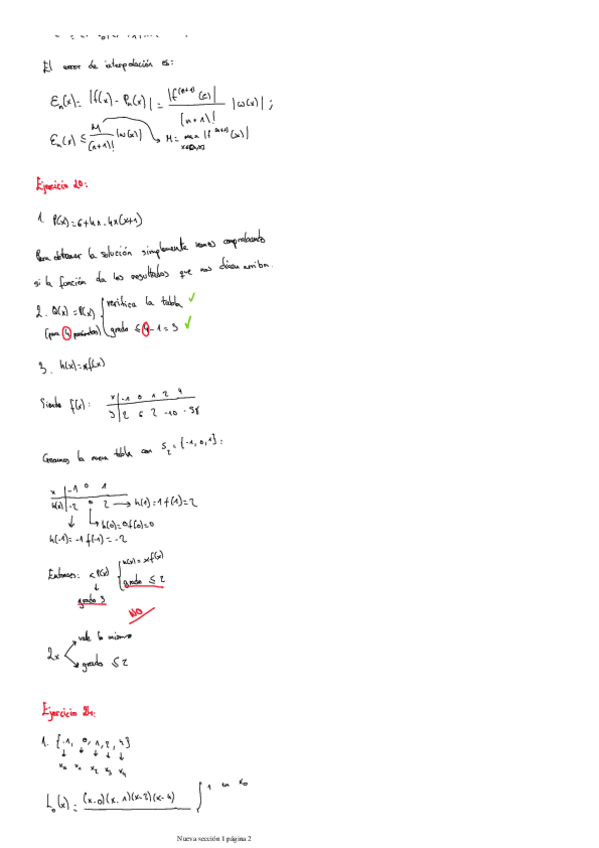 El error de interpolación es:
Eₙ(x) = |f(x) - Pₙ(x)| = |f⁽ⁿ⁺¹⁾(c)| / (n+1)! |ω(x)| ;
Eₙ(x) ≤ M / (n+1)! |ω(x)| → M = max |f⁽ⁿ⁺¹⁾(x)|
Ejercicio 20:
1. P(x) = 6+4x-4x(x+1)
Para obtener la solución simplemente vamos comprobando
si la función da los resultados que nos dicen arriba.
2. Q(x) = P(x) { verifica la tabla ✓
(para 4 parámetros) grado ≤ 4-1 = 3 ✓
3. h(x) = x f(x)
Siendo f(x): x | -1 0 1 2 4
y | 2 6 2 -10 -58
Creamos la nueva tabla con S₂ = {-1, 0, 1}:
x | -1 0 1
h(x) | -2 0 2 → h(1) = 1 f(1) = 2
↳ h(0) = 0 f(0) = 0
h(-1) = -1 f(-1) = -2
Entonces: x P(x) { h(x) = x f(x)
grado ≤ 2
grado 3
NO
2x vale lo mismo
grado ≤ 2
Ejercicio 21:
1. {-1, 0, 1, 2, 4}
x₀ x₁ x₂ x₃ x₄
L₀(x) = (x-0)(x-1)(x-2)(x-4) { 1 en x₀
Nueva sección 1 página 2